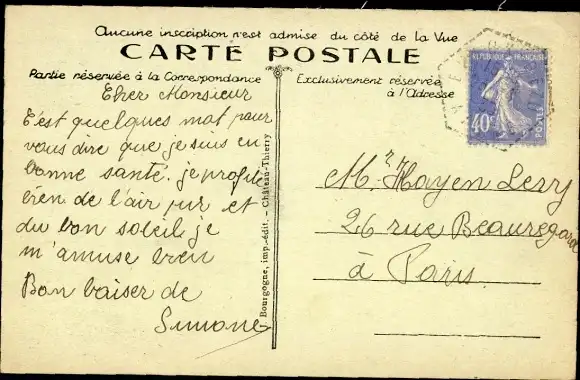 Aucune inscription n'est admise du côté de la Vue
CARTE POSTALE
Partie réservée à la Correspondance
Exclusivement réservée
à l'Adresse
Cher Monsieur
C'est quelques mot pour
vous dire que je suis en
bonne santé. je profite
bien de l'air pur et
du bon soleil, je
m'amuse bien
Bon baiser de
Simone
Bourgogne, imp.-édit. - Château-Thierry
REPUBLIQUE FRANÇAISE
40c
POSTES
Mr Hayen Levy
26 rue Beauregard
à Paris